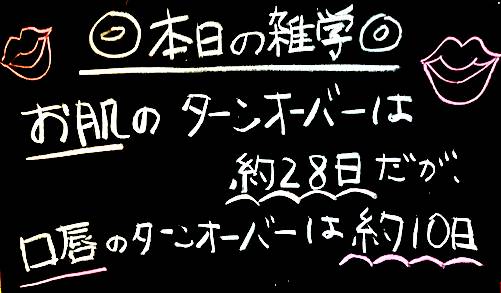 ◎本日の雑学◎
お肌のターンオーバーは
約28日だが、
口唇のターンオーバーは約10日